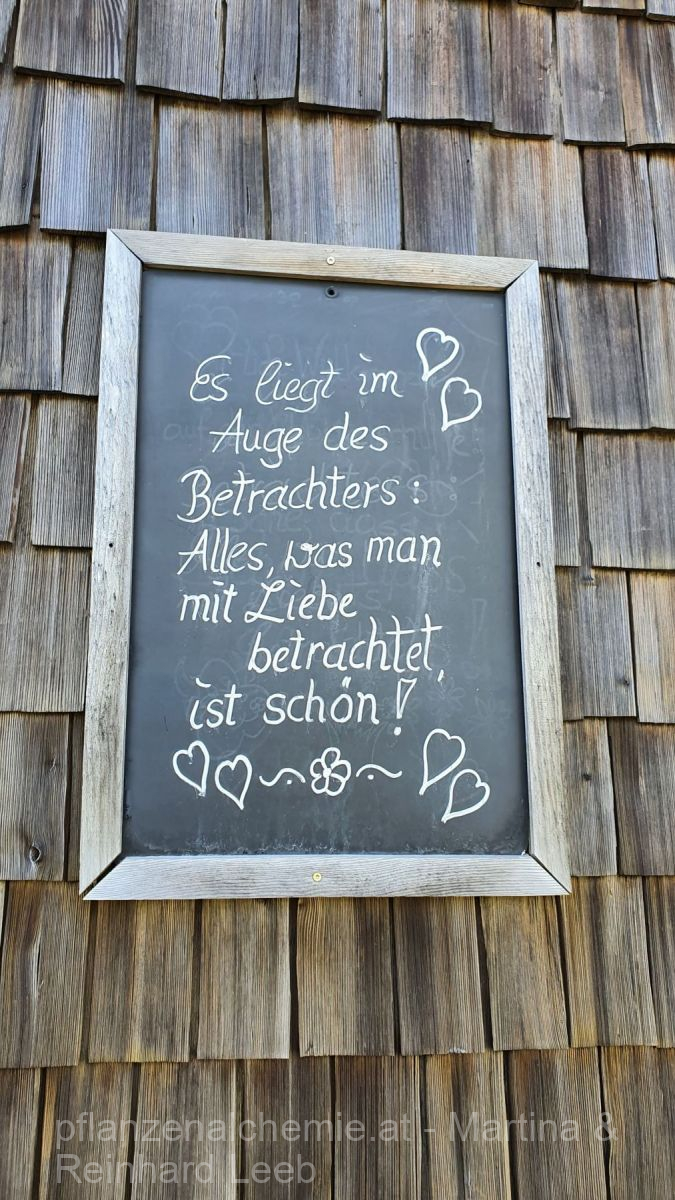 Es liegt im
Auge des
Betrachters:
Alles, was man
mit Liebe
betrachtet,
ist schön!
pflanzenalchemie.at - Martina &
Reinhard Leeb